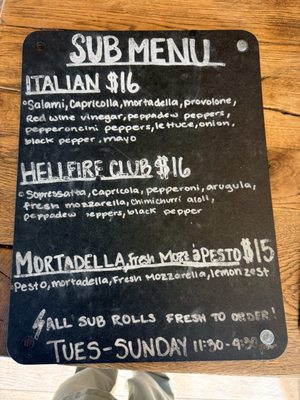 SUB MENU
ITALIAN $16
Salami, Capricolla, mortadella, provolone,
Red wine vinegar, peppadew peppers,
pepperoncini peppers, lettuce, onion,
black pepper, mayo
HELLFIRE CLUB $16
Sopressatta, Capricola, pepperoni, arugula,
fresh mozzarella, chimichurri aioli,
peppadew peppers, black pepper
MORTADELLA, fresh Mozz & PESTO $15
Pesto, mortadella, Fresh Mozzarella, lemon zest
ALL SUB ROLLS FRESH TO ORDER!
TUES-SUNDAY 11:30-9:30